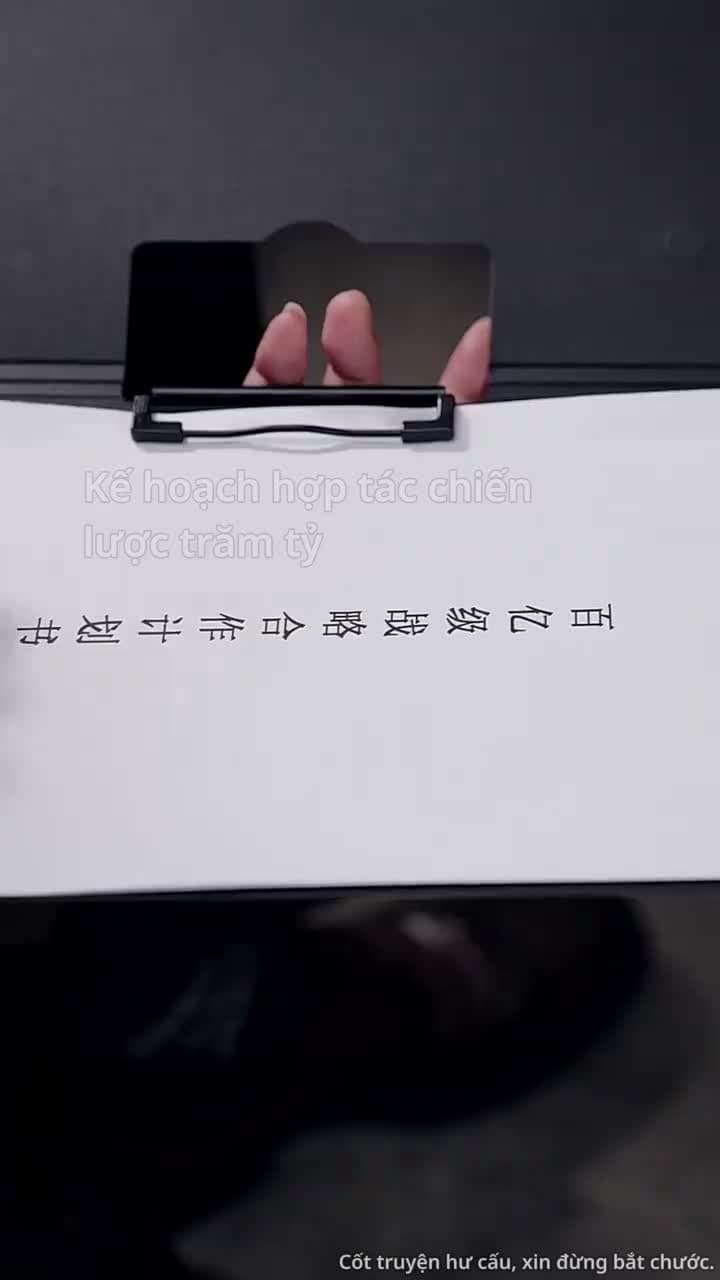 Kế hoạch hợp tác chiến
lược trăm tỷ
百亿级战略合作计划书
Cốt truyện hư cấu, xin đừng bắt chước.